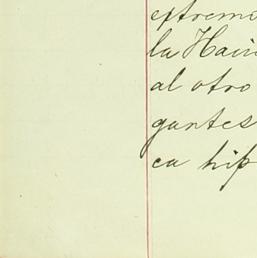 extremi
la Hain
al otro
gantes
ca hip